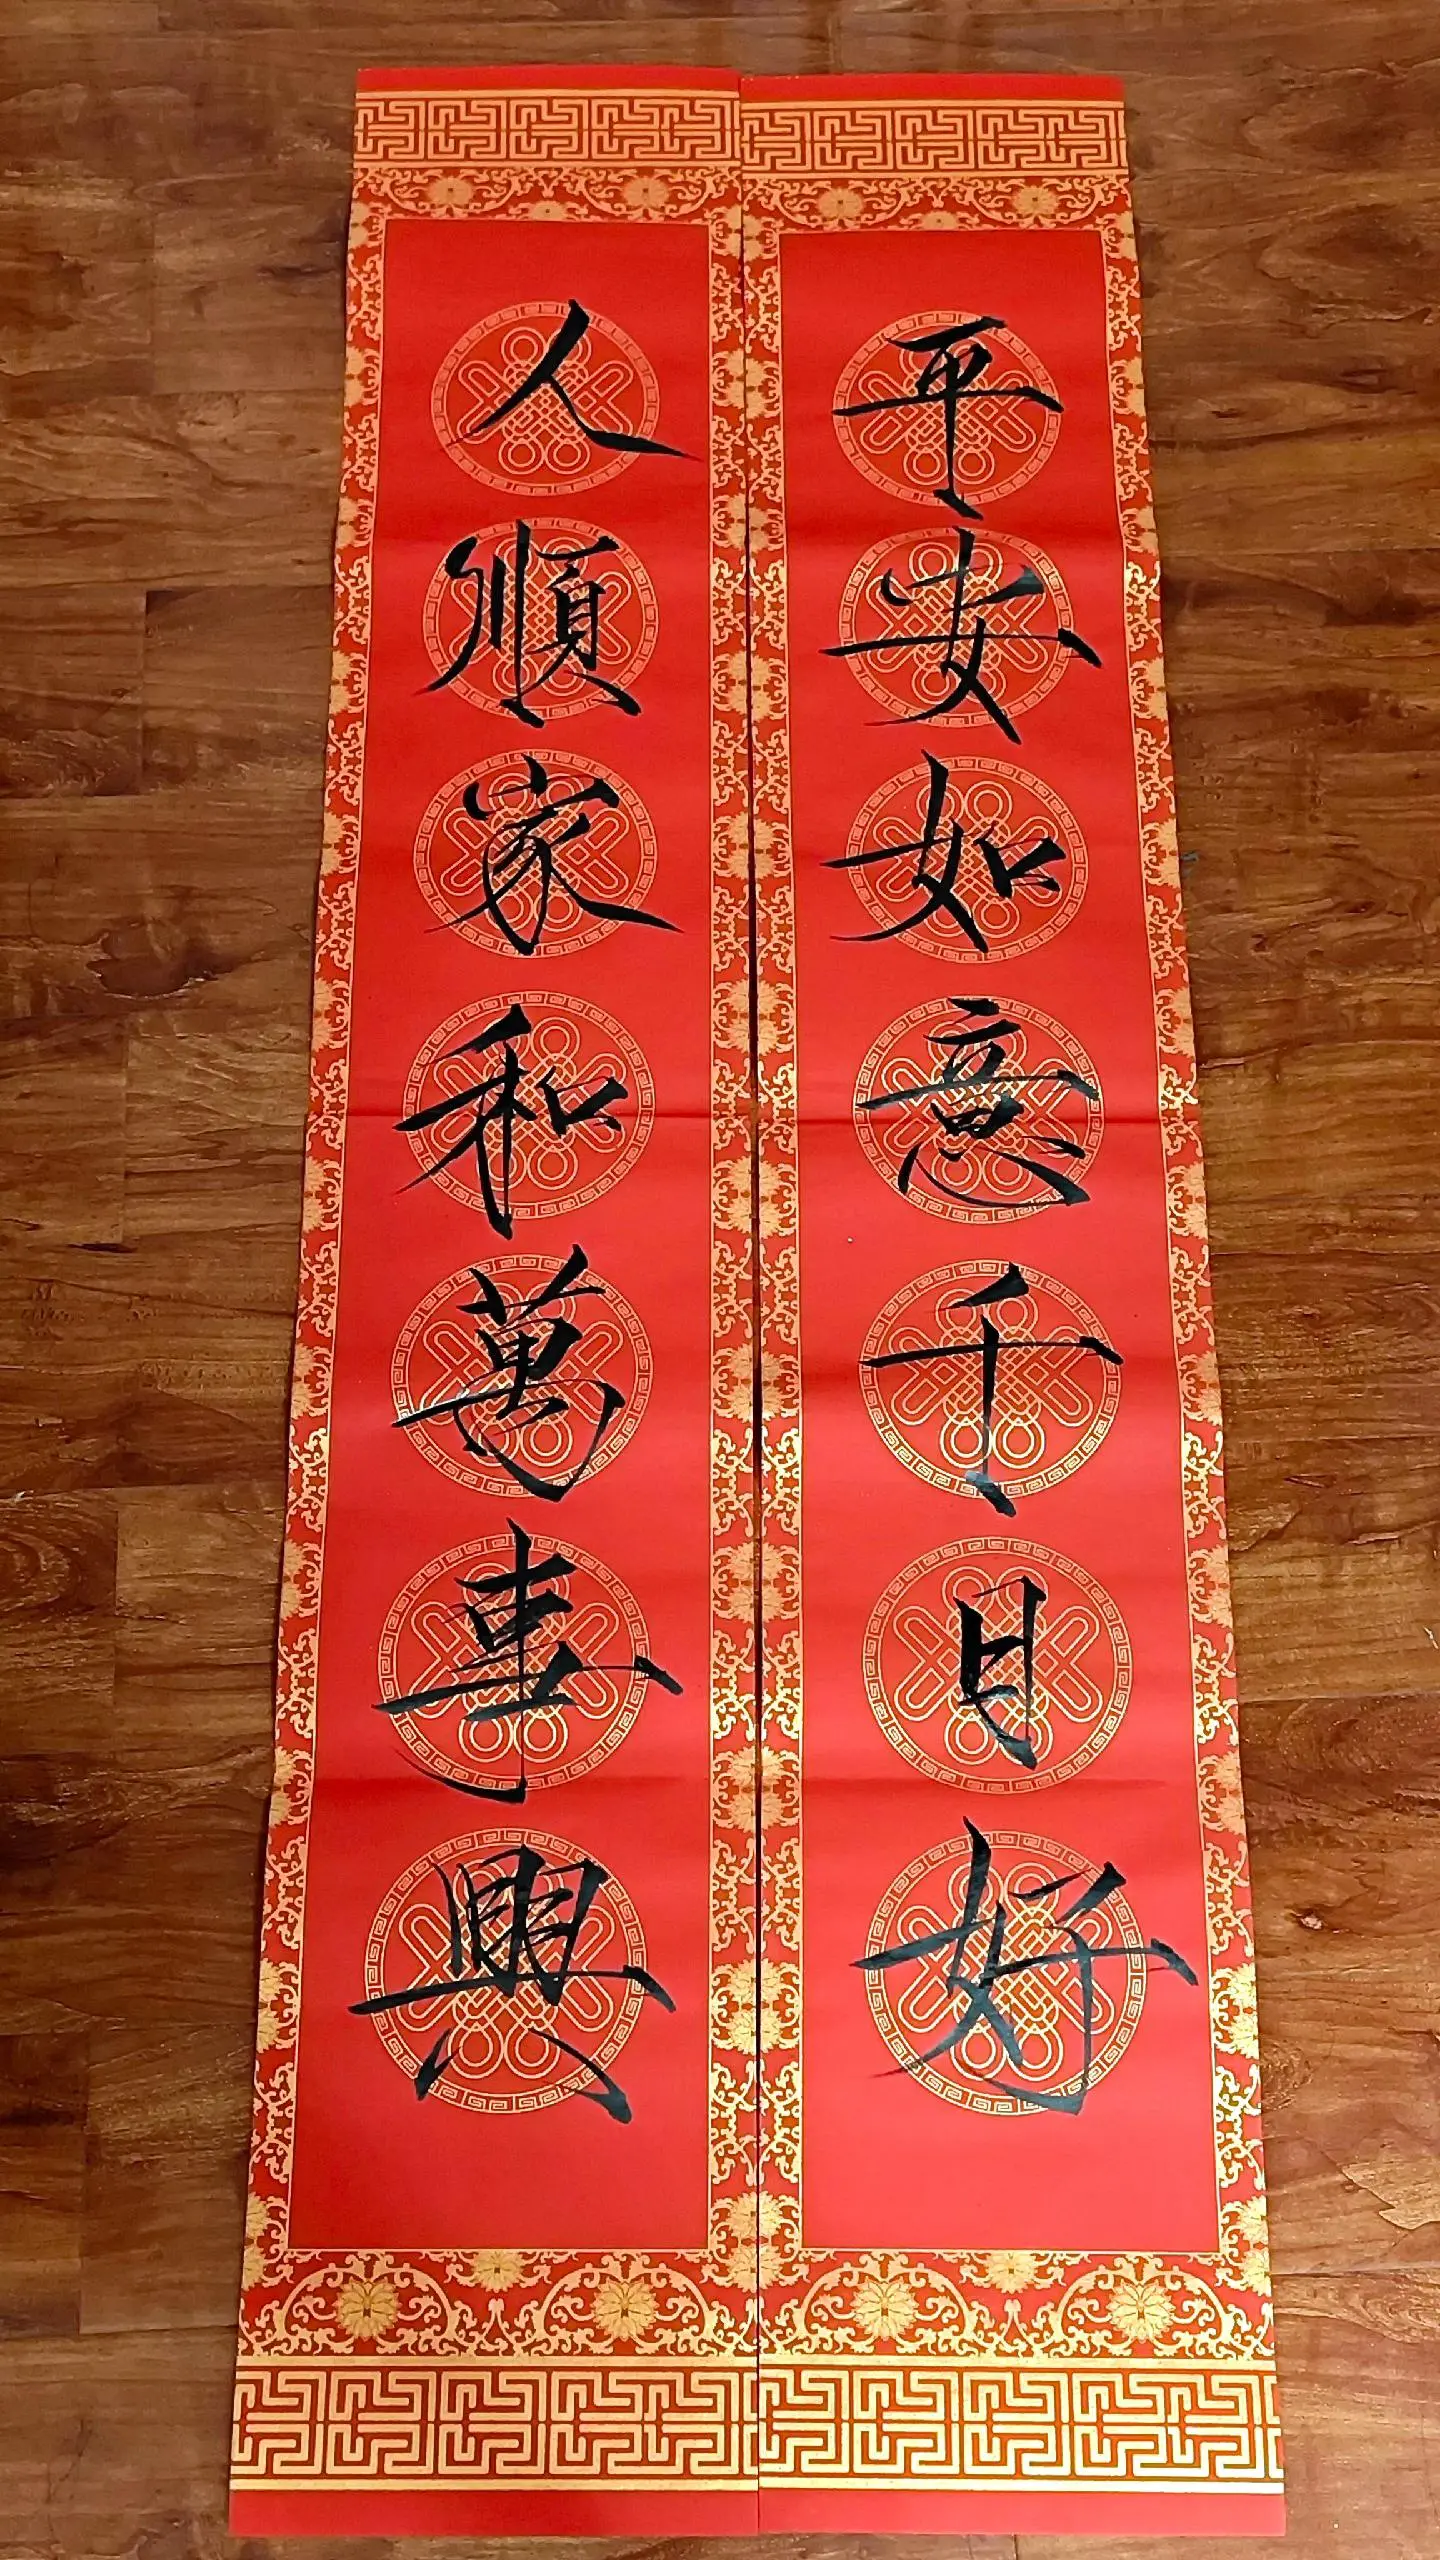 平安如意千日好
人順家和萬事興